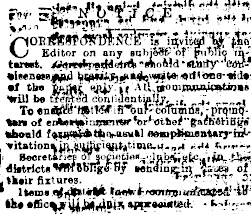 CORRESPONDENCE is invited by the
Editor on any subject of public in-
terest. Correspondents should study con-
ciseness and brevity, and write on one side
of the paper only. All communications
will be treated confidentially.
To ensure notice in our columns, promo-
ters of entertainments or other gatherings
should forward the usual complimentary in-
vitations in sufficient time.
Secretaries of societies in the
districts will oblige by sending in
their fixtures.
Items of communicated to
the office will be duly appreciated.